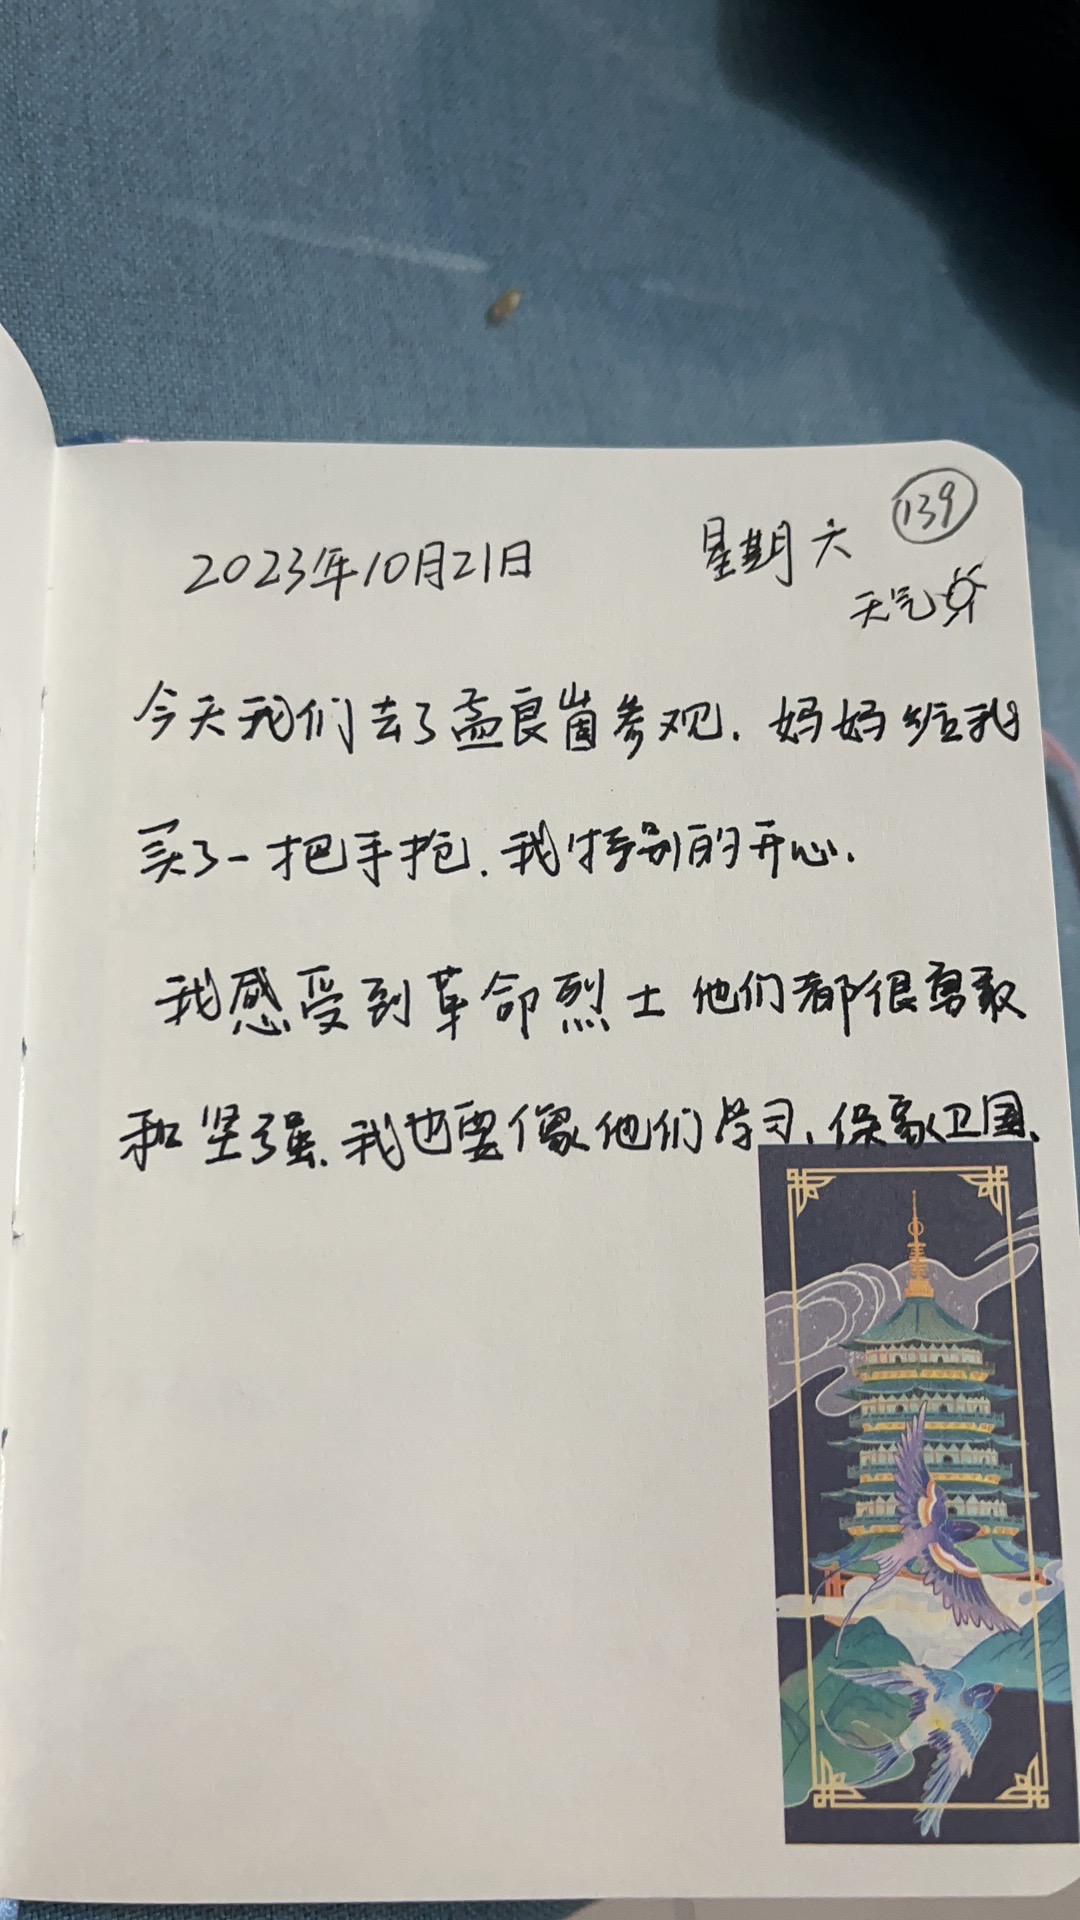 139
2023年10月21日 星期六
天气
今天我们去了孟良崮参观.妈妈给我
买了一把手抢.我特别的开心.
我感受到革命烈士他们都很勇敢
和坚强.我也要像他们学习,保家卫国.